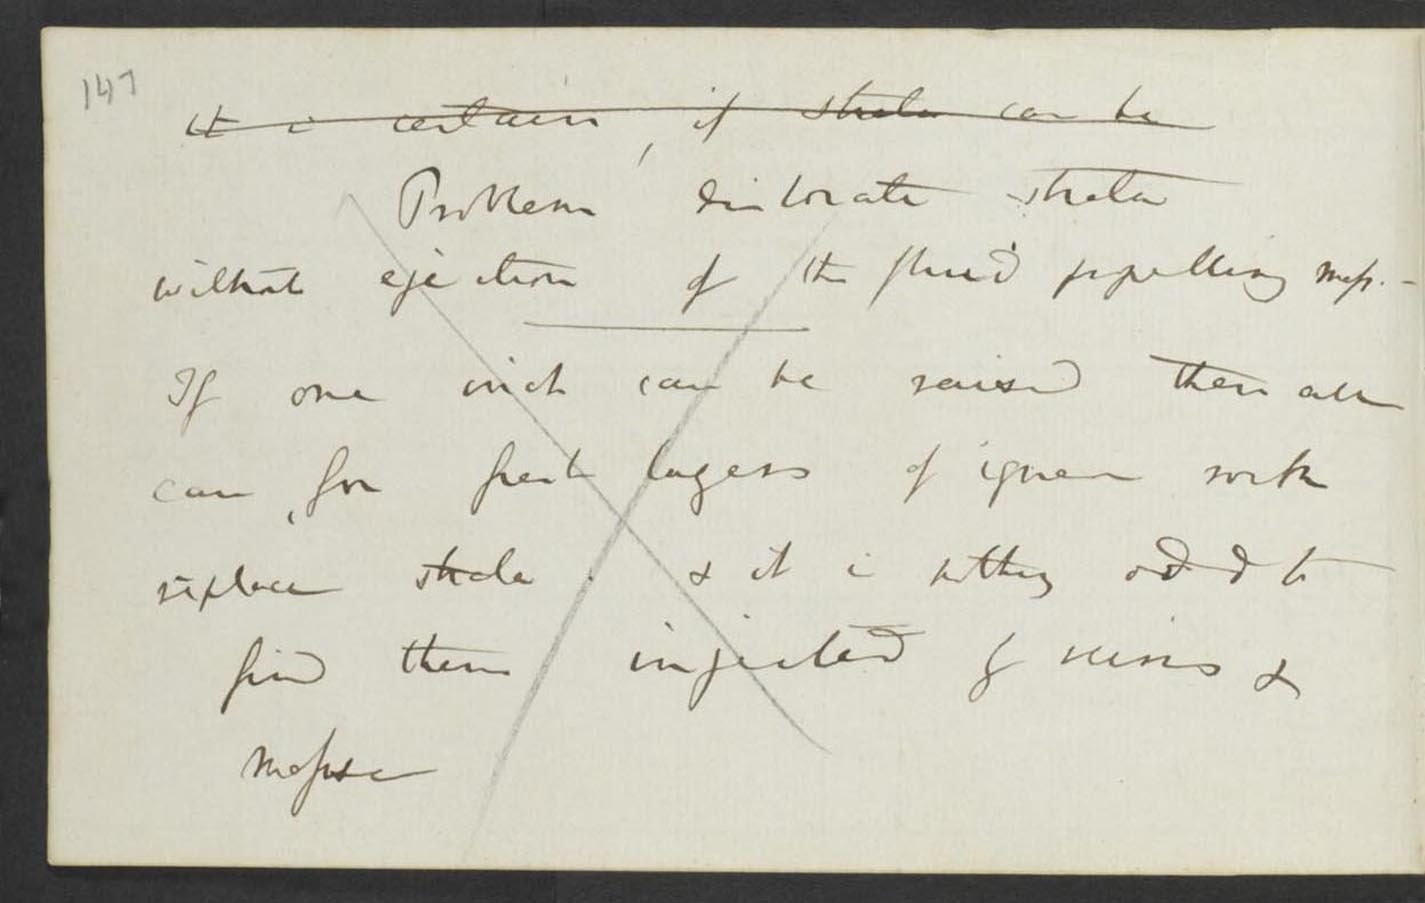 147
It is certain, if strata can be
Problem dislocate strata
without ejection of the fluid propelling mass. –
If one inch can be raised then all
can, for fresh layers of igneous rock
replace strata. & it is nothing odd to
find them injected by veins &
masses